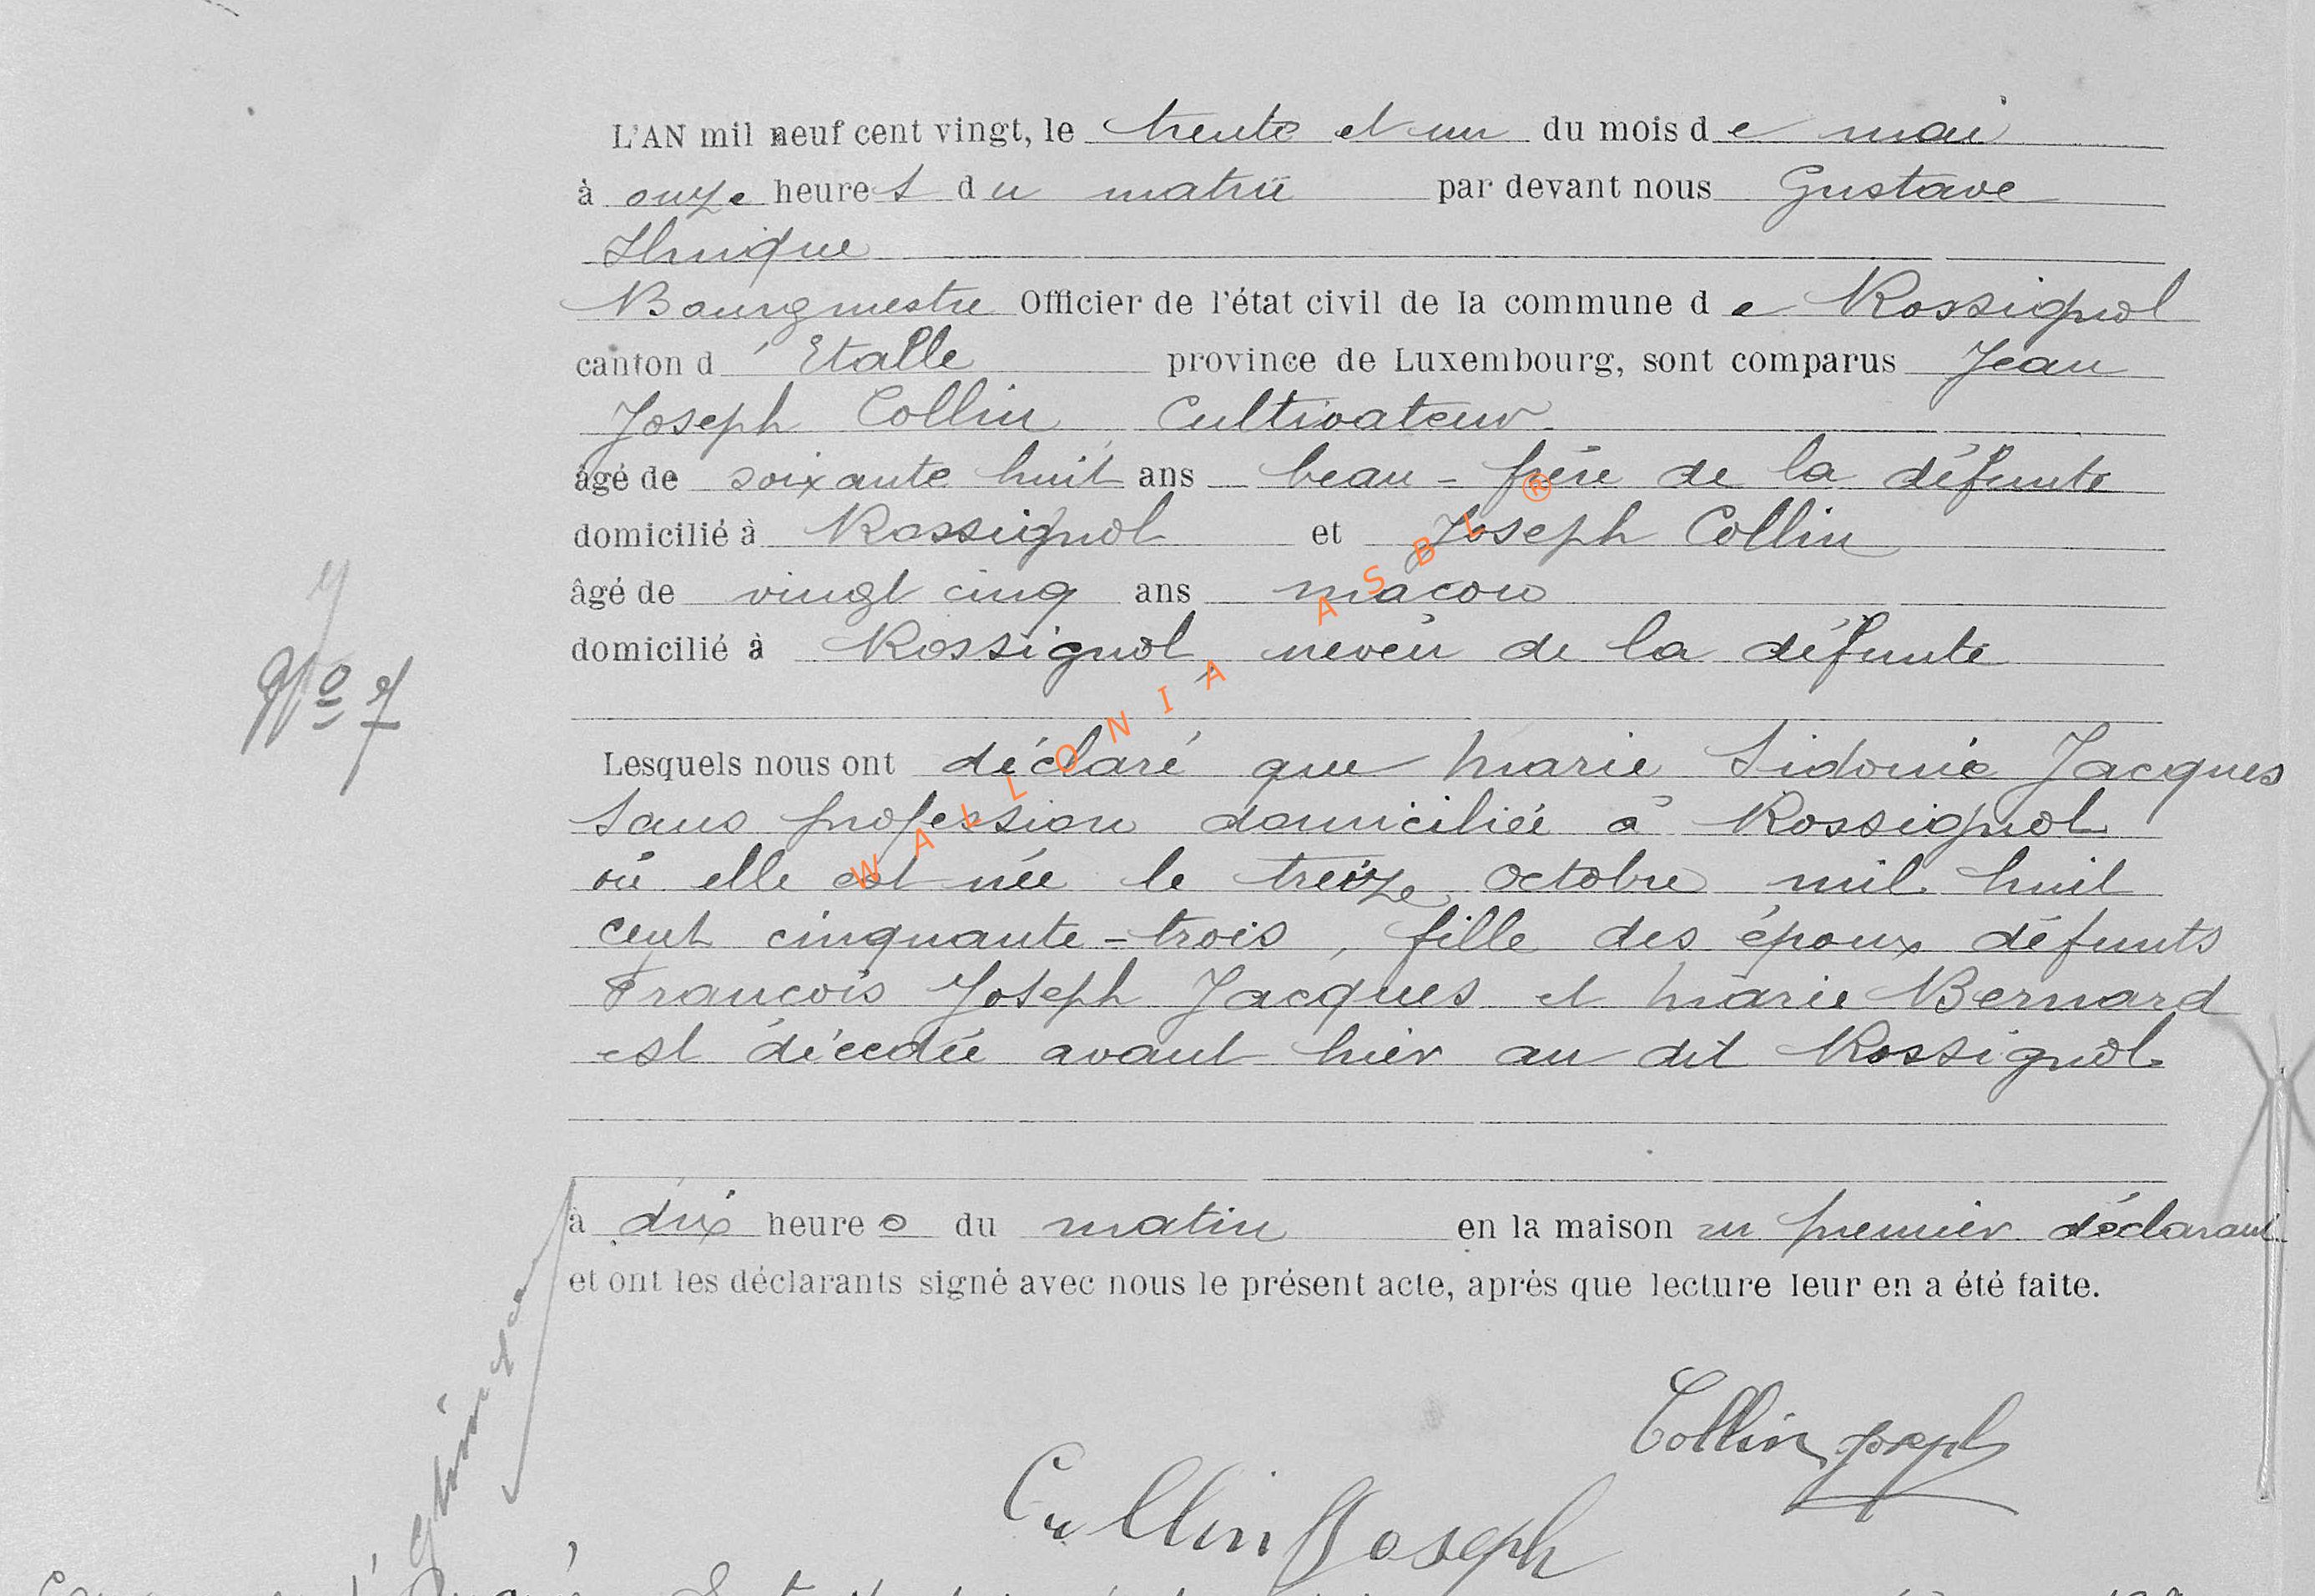 L'AN mil neuf cent vingt, le trente et un du mois de mai
à onze heures du matin par devant nous Gustave
Hinique
Bourgmestre Officier de l'état civil de la commune de Rossignol
canton d'Etalle province de Luxembourg, sont comparus Jean
Joseph Collin Cultivateur
âgé de soixante huit ans beau-frère de la défunte
domicilié à Rossignol et Joseph Collin
âgé de vingt cinq ans maçon
domicilié à Rossignol, neveu de la défunte
No 7
Lesquels nous ont déclaré que Marie Sidonie Jacques
sans profession domiciliée à Rossignol
où elle est née le treize octobre mil huit
cent cinquante-trois, fille des époux défunts
François Joseph Jacques et Marie Bernard
est décédée avant hier au dit Rossignol
à dix heures du matin en la maison du premier déclarant
et ont les déclarants signé avec nous le présent acte, après que lecture leur en a été faite.
Collin Joseph
Collin Joseph
WALLONIA ASBL ®